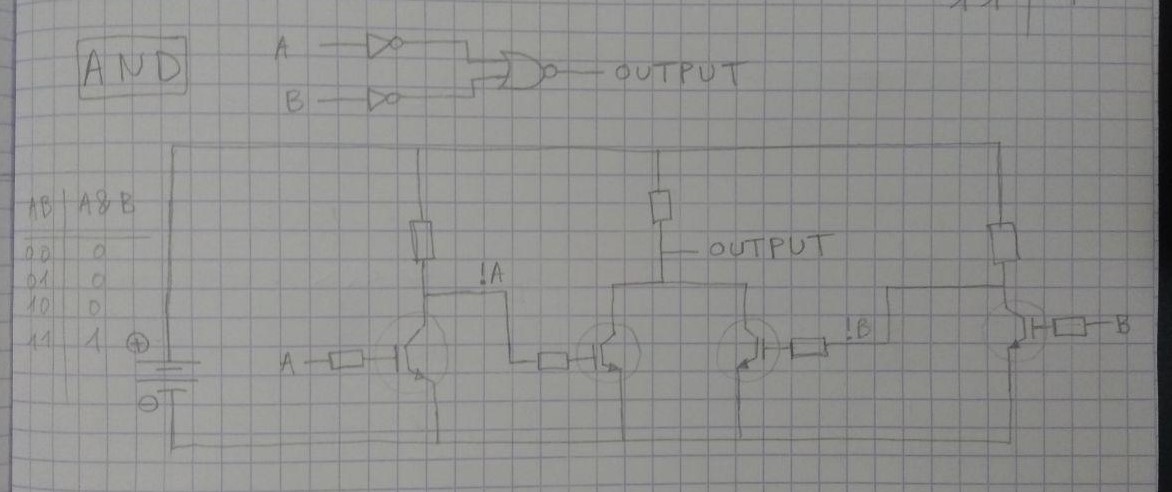 AND
A
B
OUTPUT
AB A&B
00 0
01 0
10 0
11 1
OUTPUT
!A
!B
A
B
+
-